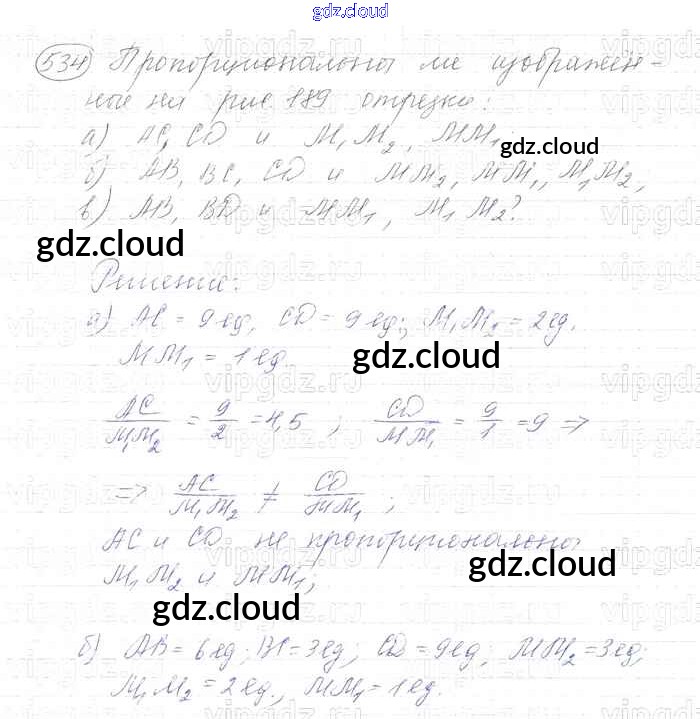 gdz.cloud
534 Пропорциональны ли изображён-
ные на рис 189 отрезки:
а) AC, CD и M₁M₂, MM₁;
gdz.cloud
б) AB, BC, CD и MM₂, MM₁, M₁M₂;
в) AB, BD и MM₁, M₁M₂?
gdz.cloud
Решение:
а) AC = 9 ед, CD = 9 ед; M₁M₂ = 2 ед.
MM₁ = 1 ед.
gdz.cloud
AC/M₁M₂ = 9/2 = 4,5 ; CD/MM₁ = 9/1 = 9 =>
=> AC/M₁M₂ ≠ CD/MM₁ ;
AC и CD не пропорциональны
M₁M₂ и MM₁;
gdz.cloud
gdz.cloud
б) AB = 6 ед; BC = 3 ед; CD = 9 ед; MM₂ = 3 ед;
M₁M₂ = 2 ед., MM₁ = 1 ед.